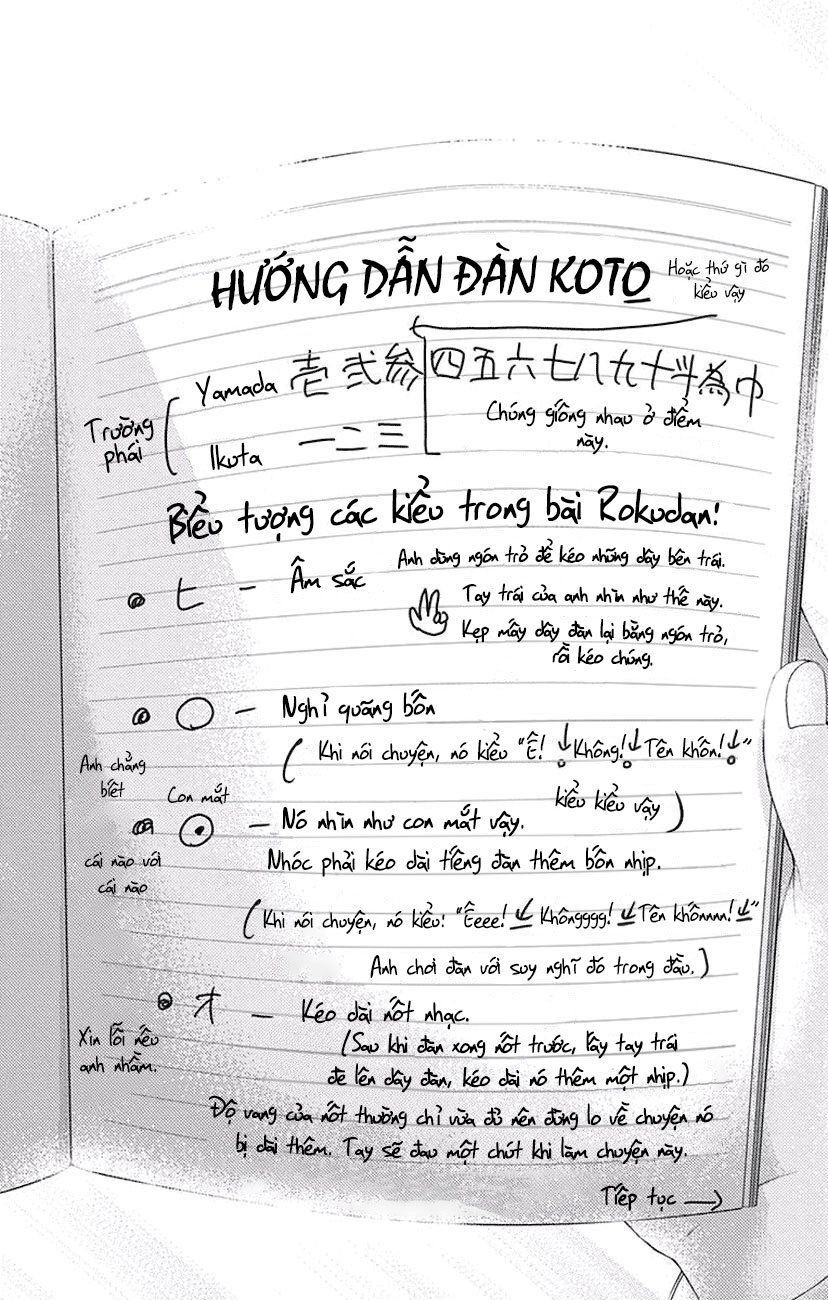 HƯỚNG DẪN ĐÀN KOTO
Hoặc thứ gì đó
kiểu vậy
Trường
phái
Yamada 壱 弐 参 四 五 六 七 八 九 十 斗 為 巾
Chúng giống nhau ở điểm
này.
Ikuta 一 二 三
Biểu tượng các kiểu trong bài Rokudan!
ヒ - Âm sắc
Anh dùng ngón trỏ để kéo những dây bên trái.
Tay trái của anh nhìn như thế này.
Kẹp mấy dây đàn lại bằng ngón trỏ,
rồi kéo chúng.
○ - Nghỉ quãng bốn
(Khi nói chuyện, nó kiểu "Ê! ↓ Không! ↓ Tên khốn! ↓"
kiểu kiểu vậy)
Anh chẳng
biết
cái nào với
cái nào
Con mắt
- Nó nhìn như con mắt vậy.
Nhóc phải kéo dài tiếng đàn thêm bốn nhịp.
(Khi nói chuyện, nó kiểu: "Êeee! ↓ Khôngggg! ↓ Tên khốnnnn! ↓"
Anh chơi đàn với suy nghĩ đó trong đầu.)
オ - Kéo dài nốt nhạc.
(Sau khi đàn xong nốt trước, lấy tay trái
đè lên dây đàn, kéo dài nó thêm một nhịp.)
Xin lỗi nếu
anh nhầm.
Độ vang của nốt thường chỉ vừa đủ nên đừng lo về chuyện nó
bị dài thêm. Tay sẽ đau một chút khi làm chuyện này.
Tiếp tục →